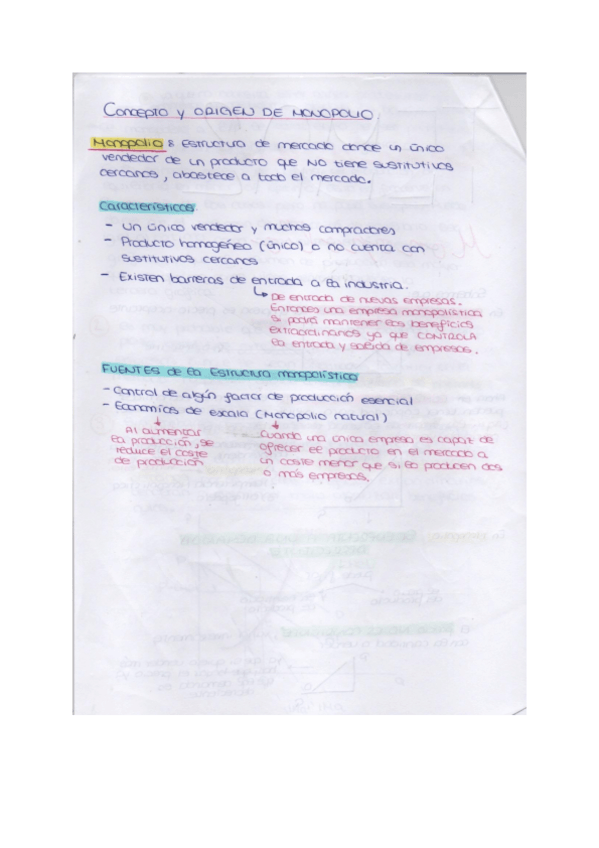 CONCEPTO Y ORIGEN DE MONOPOLIO
Monopolio: Estructura de mercado donde un único
vendedor de un producto que NO tiene sustitutivos
cercanos, abastece a todo el mercado.
Características
- Un único vendedor y muchos compradores
- Producto homogéneo (único) o no cuenta con
sustitutivos cercanos
- Existen barreras de entrada a la industria.
↳ De entrada de nuevas empresas.
Entonces una empresa monopolística
si podrá mantener los beneficios
extraordinarios ya que CONTROLA
la entrada y salida de empresas.
FUENTES de la Estructura monopolística
- Control de algún factor de producción esencial
- Economías de escala (Monopolio natural)
Al aumentar
la producción, se
reduce el coste
de producción
Cuando una única empresa es capaz de
ofrecer el producto en el mercado a
un coste menor que si lo producen dos
o más empresas.